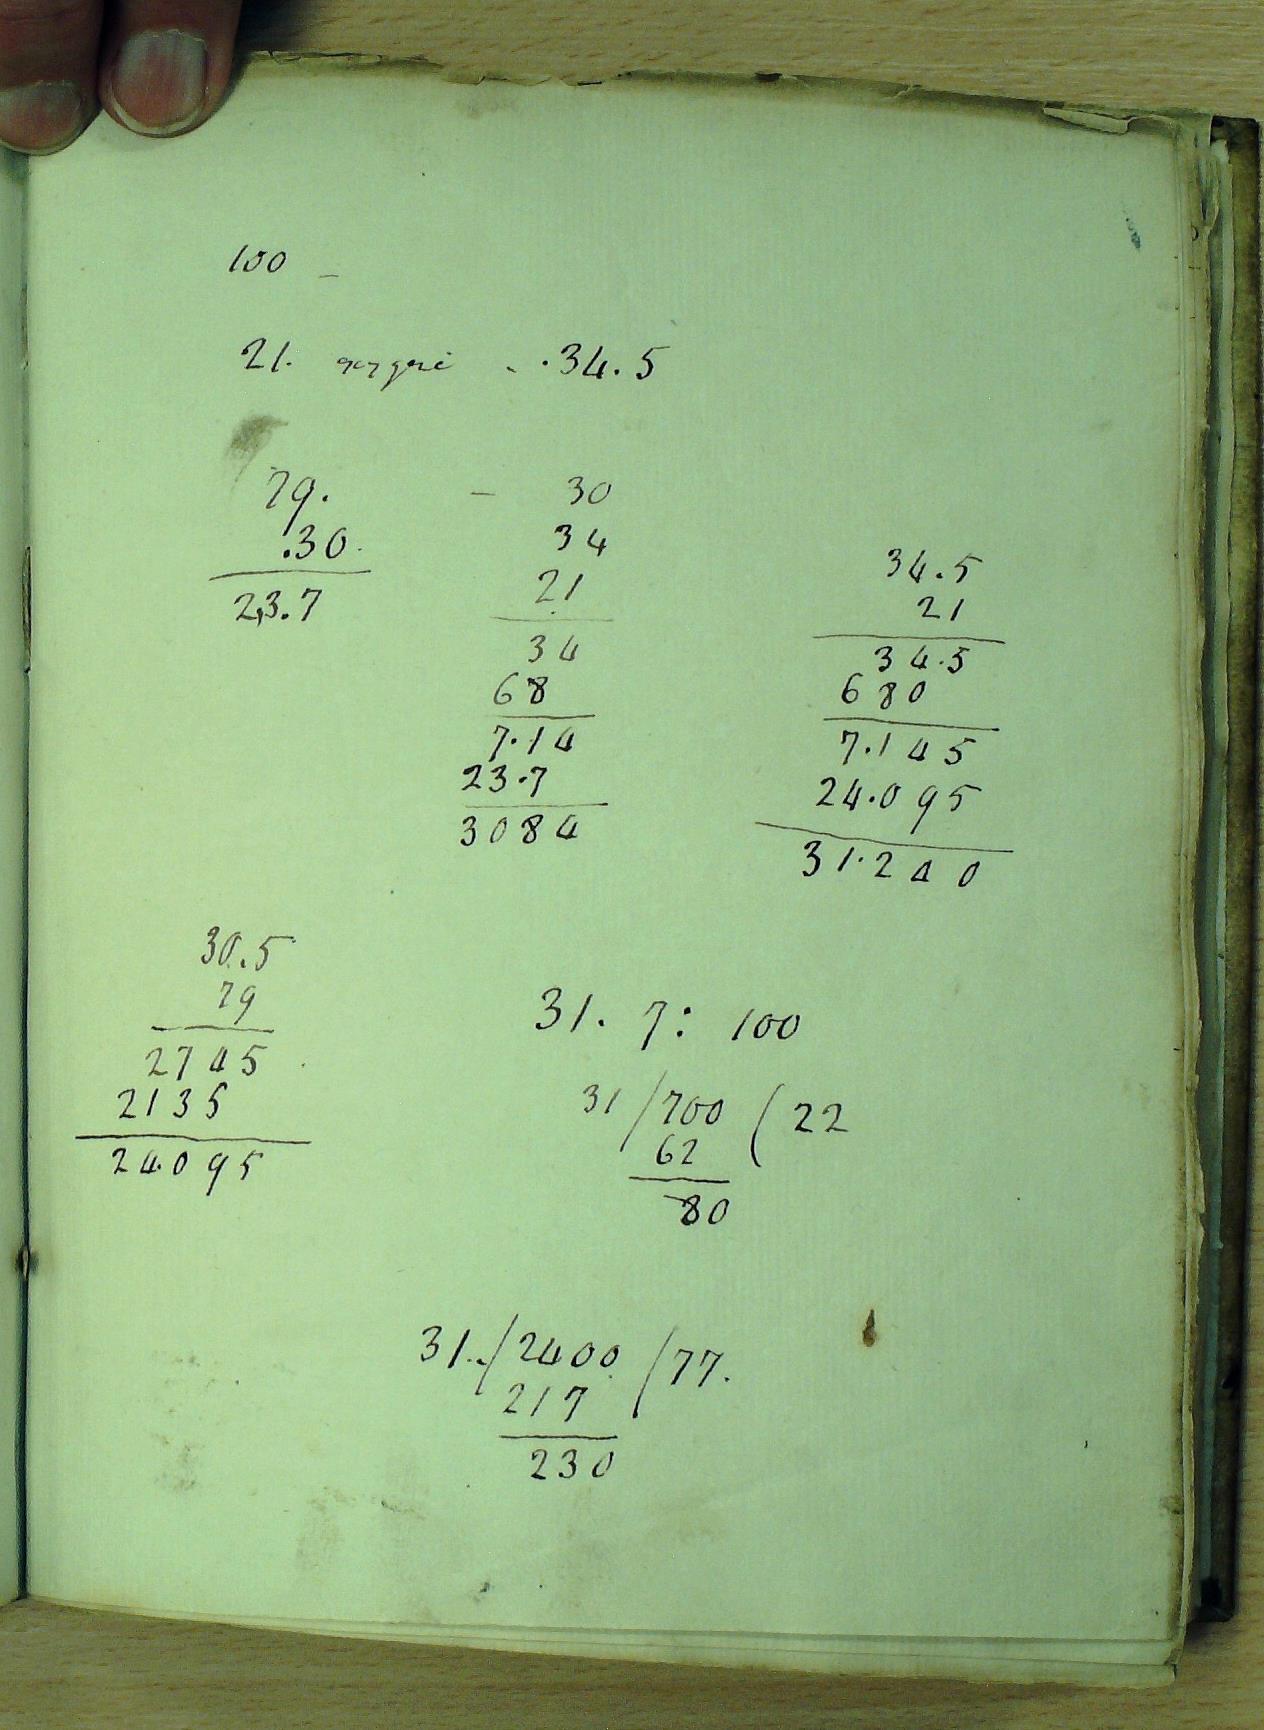 100 -
21. oxygene . .34.5
79.
.30.
23.7
- 30
34
21
34
68
7.14
23.7
3084
34.5
21
34.5
680
7.145
24.095
31.240
30.5
79
2745
2135
24.095
31. 7: 100
31/700(22
62
80
31./2400/77.
217
230